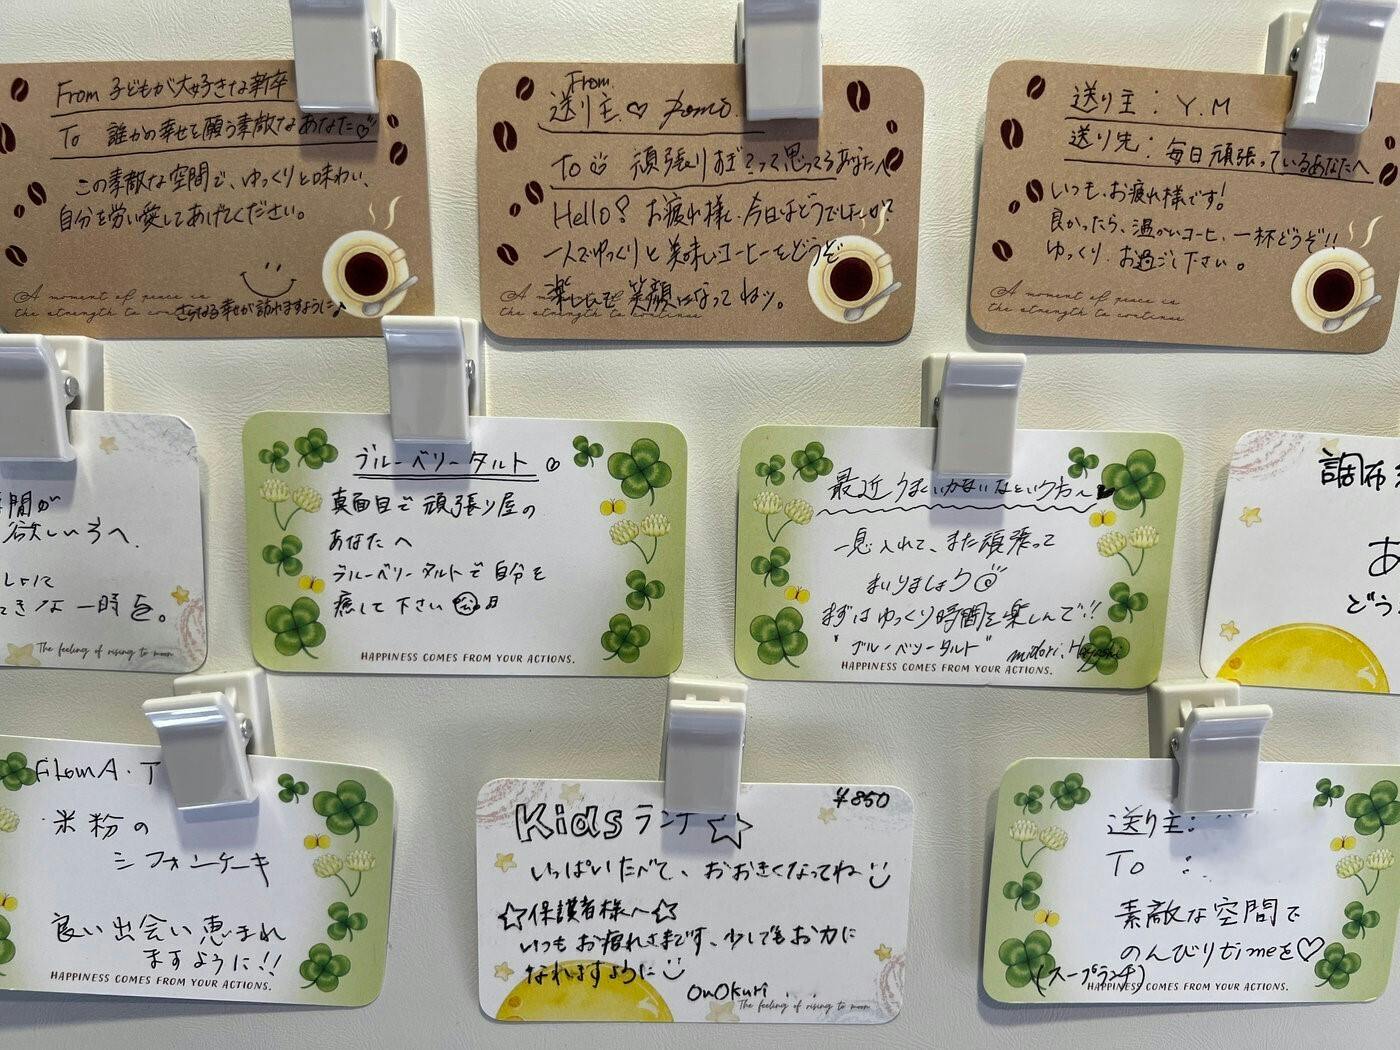 From 子どもが大好きな新卒
To 誰かの幸せを願う素敵なあなた♡
この素敵な空間で、ゆっくりと味わい、
自分を労い愛してあげてください。
A moment of peace is
the strength to continue
さらなる幸せが訪れますように♪
From
送り主.♡
To☺ 頑張りすぎ?って思ってるあなたへ
Hello! お疲れ様、今日はどうでしたか?
一人でゆっくりと美味しいコーヒーをどうぞ
楽しんで笑顔になってねッ。
A moment of peace is
the strength to continue
送り主:Y.M
送り先:毎日頑張っているあなたへ
いつも、お疲れ様です!
良かったら、温かいコーヒー、一杯どうぞ!!
ゆっくり、お過ごし下さい。
A moment of peace is
the strength to continue
間が
欲しい方へ
きな一時を。
The feeling of rising to moon
ブルーベリータルト ♡
真面目で頑張り屋の
あなたへ
ブルーベリータルトで自分を
癒して下さい
HAPPINESS COMES FROM YOUR ACTIONS.
最近うまくいかないなという方へ
一息入れて、また頑張って
まいりましょう☺
まずはゆっくり時間を楽しんで!!
"ブルーベリータルト" midori.
HAPPINESS COMES FROM YOUR ACTIONS.
調布
あ
どう
From A.T
米粉の
シフォンケーキ
良い出会い恵まれ
ますように!!
HAPPINESS COMES FROM YOUR ACTIONS.
¥850
Kidsランチ☆
いっぱいたべて、おおきくなってね
☆保護者様へ☆
いつもお疲れさまです、少しでもお力に
なれますように
OnOkuri
The feeling of rising to moon
送り主:
To :
素敵な空間で
のんびりtimeを♡
(スープランチ)
HAPPINESS COMES FROM YOUR ACTIONS.